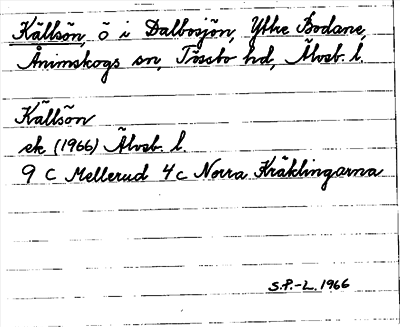 Källsön, ö i Dalbosjön, Yttre Bodane,
Ånimskogs sn, Tössbo hd, Älvsb. l.
Källsön
ek (1966) Älvsb. l.
9 C Mellerud 4c Norra Kräklingarna
S.P.-L. 1966